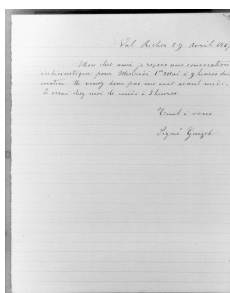 Val Richer 29 Avril 186
Mon cher ami, je reçois une convocation
pour Mercredi 1er Mai à 9 heures du
matin. Ne venez donc pas me voir avant midi.
Je serai chez moi de midi à 3 heures.
Tout à vous
Signé Guizot